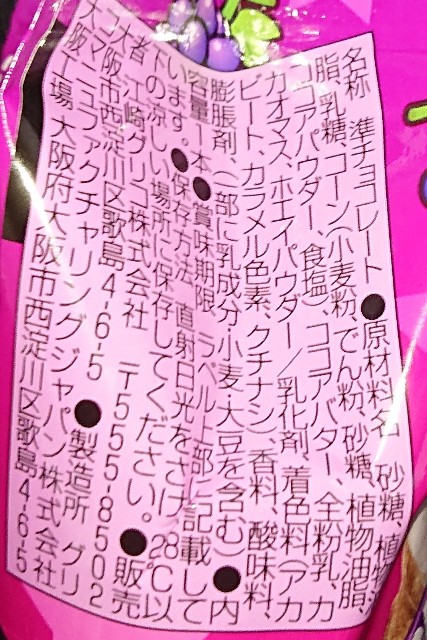 名称 準チョコレート ●原材料名 砂糖、植物
脂、乳糖、コーン(小麦粉、でん粉、砂糖、植物油脂、
ココアパウダー、食塩)、ココアバター、全粉乳、カ
カオマス、ホエイパウダー/乳化剤、着色料(アカ
ビート、カラメル色素、クチナシ)、香料、酸味料、
膨脹剤、(一部に乳成分・小麦・大豆を含む) ●内
容量 1本 ●賞味期限 ラベル上部に記載して
います。 ●保存方法 直射日光をさけ、28℃以
下の涼しい場所に保存してください。 ●販売
者 江崎グリコ株式会社 〒555-8502
大阪市西淀川区歌島4-6-5 ●製造所 グリ
コマニュファクチャリングジャパン株式会社
大阪工場 大阪府大阪市西淀川区歌島4-6-5